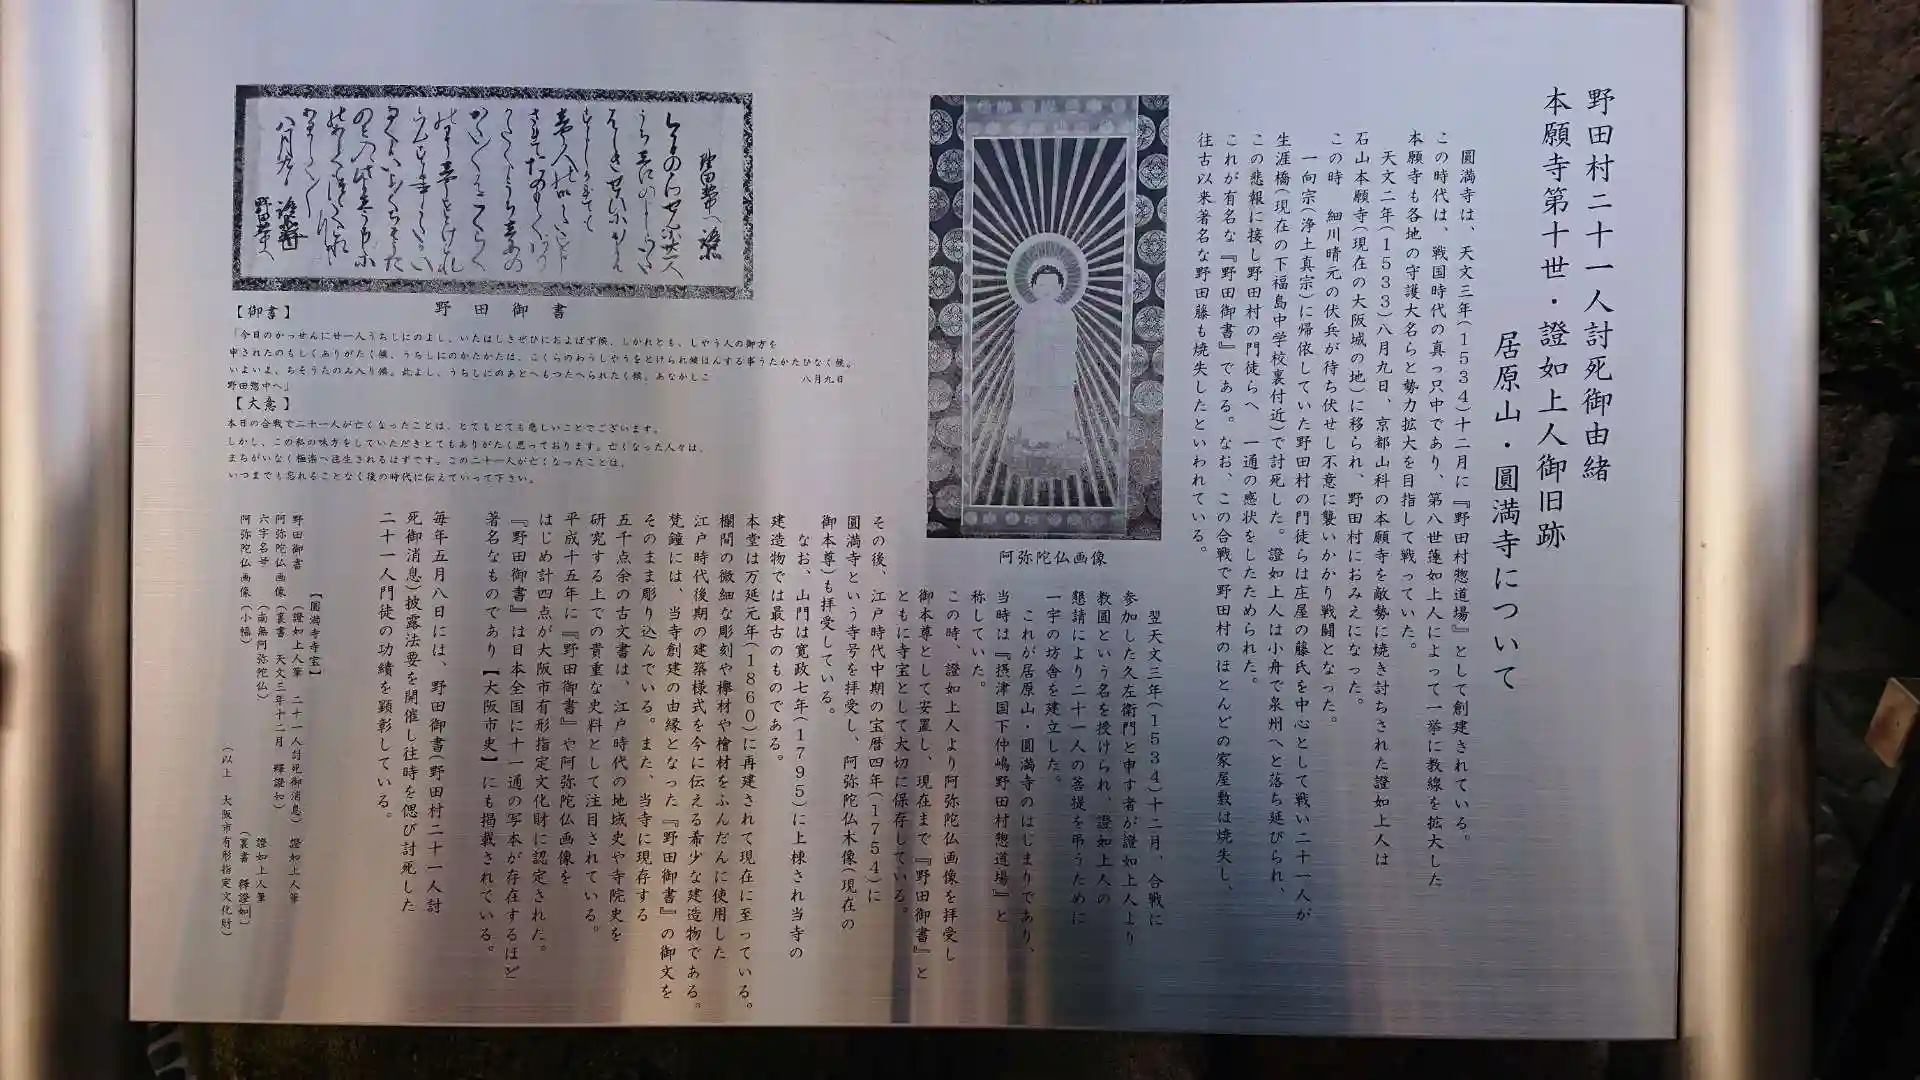 野田村二十一人討死御由緒
本願寺第十世・證如上人御旧跡
居原山・圓満寺について
圓満寺は、天文三年(1534)十二月に『野田村惣道場』として創建されている。
この時代は、戦国時代の真っ只中であり、第八世蓮如上人によって一挙に教線を拡大した
本願寺も各地の守護大名らと勢力拡大を目指して戦っていた。
天文二年(1533)八月九日、京都山科の本願寺を敵勢に焼き討ちされた證如上人は
石山本願寺(現在の大阪城の地)に移られ、野田村におみえになった。
この時 細川晴元の伏兵が待ち伏せし不意に襲いかかり戦闘となった。
一向宗(浄土真宗)に帰依していた野田村の門徒らは庄屋の藤氏を中心として戦い二十一人が
生涯橋(現在の下福島中学校裏付近)で討死した。證如上人は小舟で泉州へと落ち延びられ、
この悲報に接し野田村の門徒らへ 一通の感状をしたためられた。
これが有名な『野田御書』である。なお、この合戦で野田村のほとんどの家屋敷は焼失し、
往古以来著名な野田藤も焼失したといわれている。
阿弥陀仏画像
翌天文三年(1534)十二月、合戦に
参加した久左衛門と申す者が證如上人より
教圓という名を授けられ、證如上人の
懇請により二十一人の菩提を弔うために
一宇の坊舎を建立した。
これが居原山・圓満寺のはじまりであり、
当時は『摂津国下仲嶋野田村惣道場』と
称していた。
この時、證如上人より阿弥陀仏画像を拝受し
御本尊として安置し、現在まで『野田御書』と
ともに寺宝として大切に保存している。
その後、江戸時代中期の宝暦四年(1754)に
圓満寺という寺号を拝受し、阿弥陀仏木像(現在の
御本尊)も拝受している。
なお、山門は寛政七年(1795)に上棟され当寺の
建造物では最古のものである。
本堂は万延元年(1860)に再建されて現在に至っている。
欄間の微細な彫刻や欅材や檜材をふんだんに使用した
江戸時代後期の建築様式を今に伝える希少な建造物である。
梵鐘には、当寺創建の由縁となった『野田御書』の御文を
そのまま彫り込んでいる。また、当寺に現存する
五千点余の古文書は、江戸時代の地域史や寺院史を
研究する上での貴重な史料として注目されている。
平成十五年に『野田御書』や阿弥陀仏画像を
はじめ計四点が大阪市有形指定文化財に認定された。
『野田御書』は日本全国に十一通の写本が存在するほど
著名なものであり【大阪市史】にも掲載されている。
毎年五月八日には、野田御書(野田村二十一人討
死御消息)披露法要を開催し往時を偲び討死した
二十一人門徒の功績を顕彰している。
野田御書
【御書】
「今日のかっせんにせ一人うちしにのよし、いたはしきぜひにおよばず候、しかれとも、しやう人の御方を
申されたのもしくありがたく候、うちしにのかたかたは、こくらのわうしやうをとけられ候はんする事うたかたひなく候。
いよいよ、ちそうたのみ入り候。此よし、うちしにのあとへもつたへられたく候。あなかしこ 八月九日
野田惣中へ」
【大意】
本日の合戦で二十一人が亡くなったことは、とてもとても悲しいことでございます。
しかし、この私の味方をしていただきとてもありがたく思っております。亡くなった人々は、
まちがいなく極楽へ往生されるはずです。この二十一人が亡くなったことは、
いつまでも忘れることなく後の時代に伝えていって下さい。
【圓満寺寺宝】
野田御書 (證如上人筆 二十一人討死御消息) 證如上人筆
阿弥陀仏画像(裏書 天文三年十二月 釋證如)
六字名号 (南無阿弥陀仏) 證如上人筆
阿弥陀仏画像(小幅) (裏書 釋證如)
(以上 大阪市有形指定文化財)